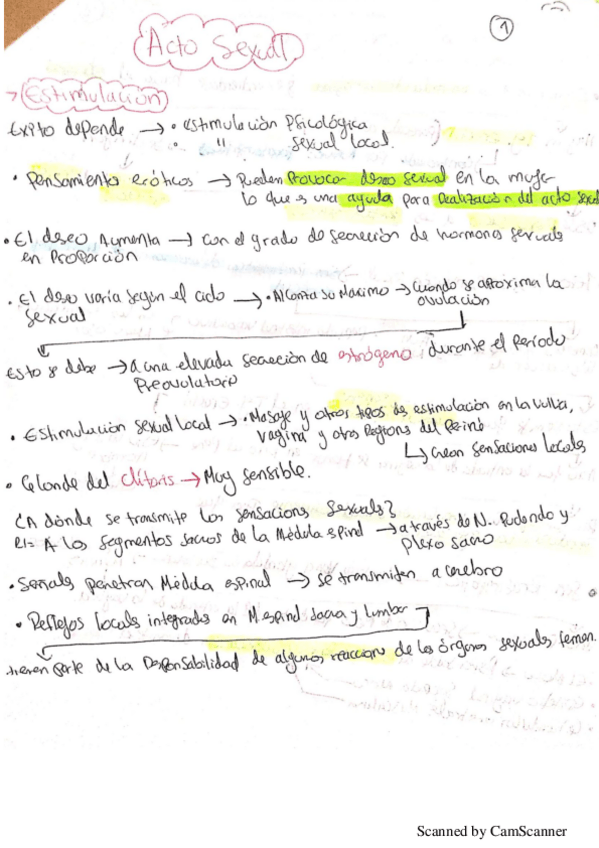 1
Acto Sexual
> Estimulación
Exito depende → • Estimulación Psicológica
• " Sexual local.
• Pensamientos eróticos → Pueden Provocar deseo sexual en la mujer
lo que es una ayuda para Realización del acto sexual
• El deseo Aumenta → con el grado de secreción de hormonas sexuales
en Proporción
• El deseo varía según el ciclo → • Alcanza su Máximo → Cuando se aproxima la
sexual ovulación
Esto se debe → a una elevada secreción de estrógeno durante el Periodo
Preovulatorio
• Estimulación sexual local → • Masaje y otros tipos de estimulación en la vulva,
vagina y otras Regiones del Periné
↳ Crean Sensaciones locales
• Glande del clítoris → Muy sensible.
¿A dónde se transmite las sensaciones sexuales?
R1= A los segmentos sacros de la Médula espinal → a través de N. Pudendo y
Plexo sacro
• Señales penetran Médula espinal → se transmiten a cerebro
• Reflejos locales integrados en M espinal sacra y lumbar
tienen parte de la Responsabilidad de algunas reacciones de los órganos sexuales femen.
Scanned by CamScanner